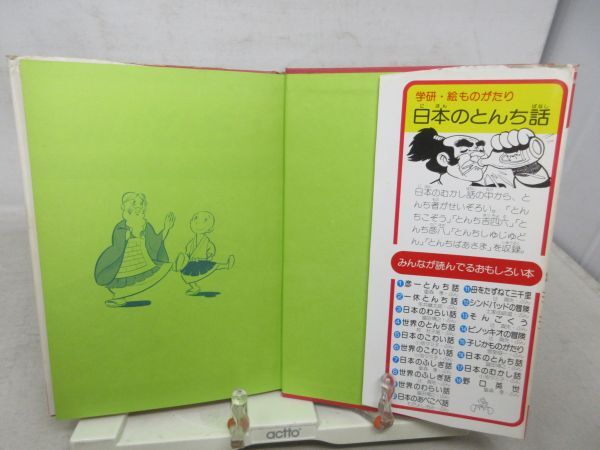 学研・絵ものがたり
日本のとんち話
日本のむかし話の中から、と
んち者がせいぞろい。「とん
ちこぞう」「とんち吉四六」「とん
ち彦八」「とんちしゅじゅど
ん」「とんちばあさま」を収録。
みんなが読んでるおもしろい本
1 彦一とんち話
2 一休とんち話
3 日本のわらい話
4 世界のとんち話
5 日本のこわい話
6 世界のこわい話
7 日本のふしぎ話
8 世界のふしぎ話
9 世界のわらい話
日本のあべこべ話
11 母をたずねて三千里
12 シンドバッドの冒険
13 そんごくう
14 ピノッキオの冒険
15 子じかものがたり
16 日本のとんち話
17 日本のむかし話
18 野口英世
actto